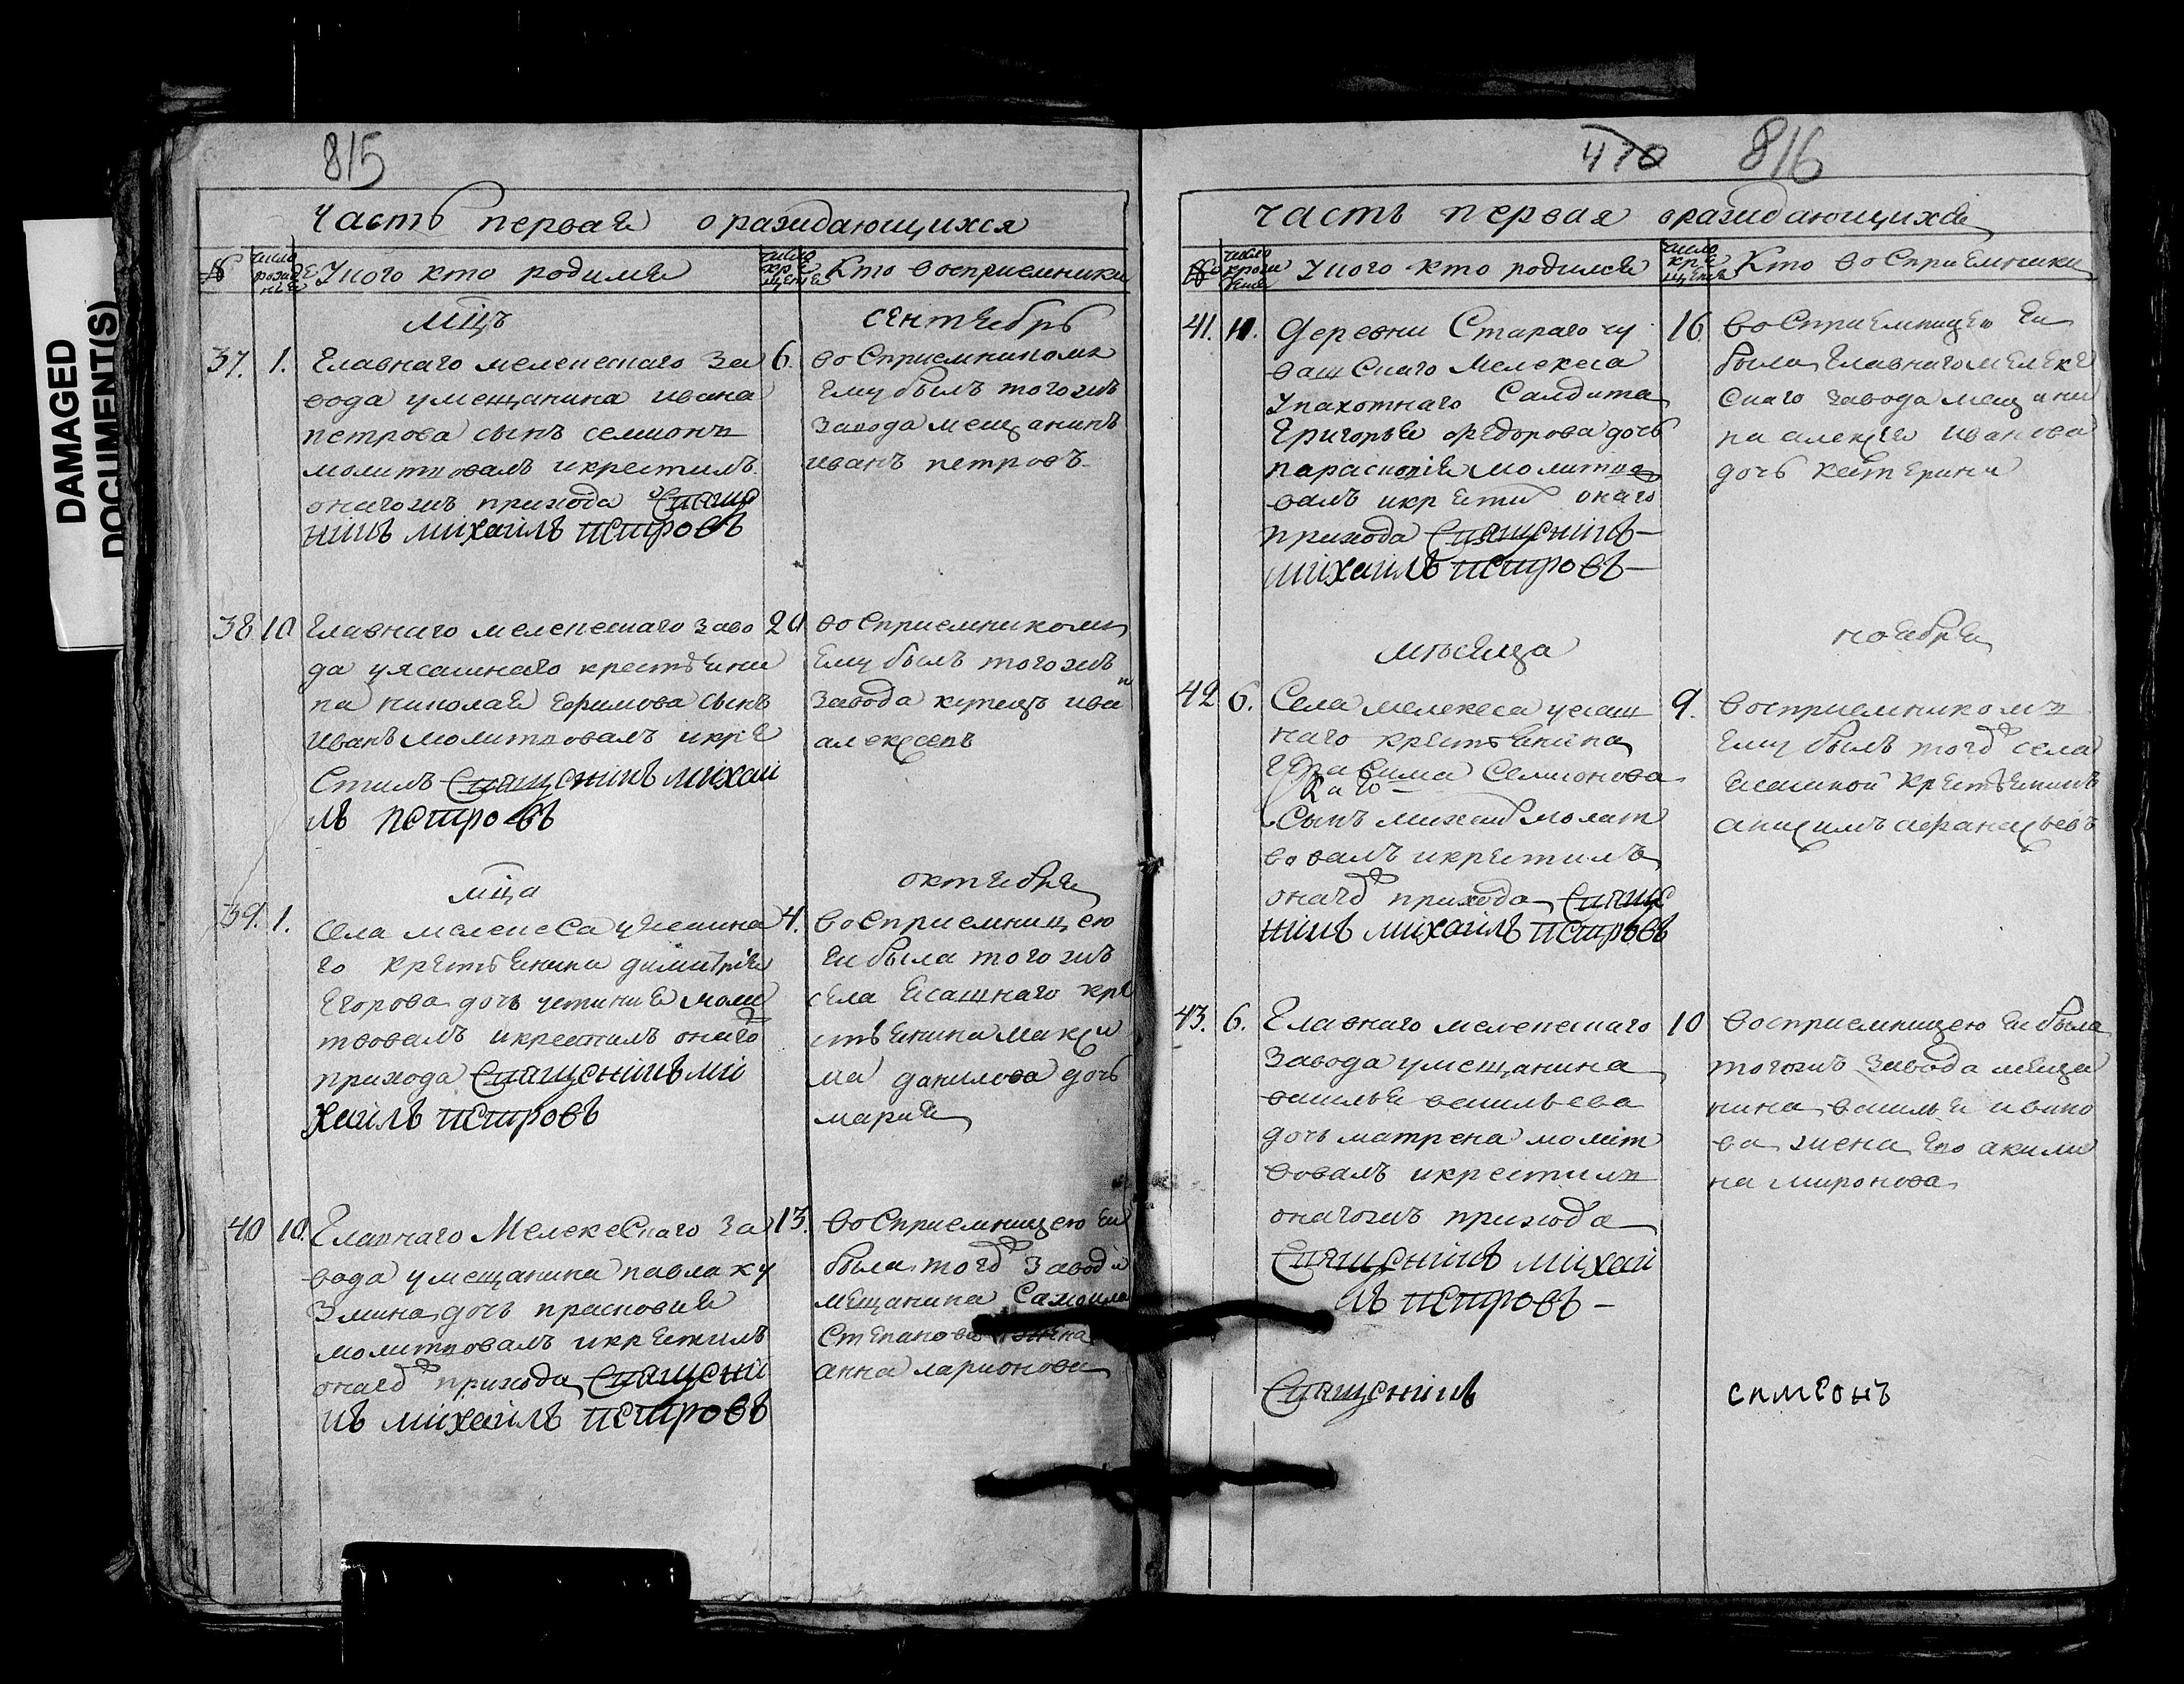 DAMAGED
DOCUMENT(S)
815
Часть первая о раждающихся
№ число рожденiя У кого кто родился число крещенiя Кто восприемники
мцъ сентября
37. 1. Главнаго мелекескаго за
вода умещанина ивана
петрова сынъ семионъ
молитвовалъ икрестилъ
онагожъ прихода Священ
никъ михаилъ петровъ
6. воСприемникомъ
ему былъ тогожъ
завода мещанинъ
иванъ петровъ
38 10 Главнаго мелекескаго заво
да уясашнаго крестьяни
на николая ефимова сынъ
иванъ молитвовалъ икре
Стилъ Священникъ михаи
лъ петровъ
20 воСприемникомъ
ему былъ тогожъ
завода купецъ иван
алексеевъ
мца октября
39. 1. Села мелекеса уясашна
го крестьянина димитрiя
Егорова дочь устиния моли
твовалъ икрестилъ онаго
прихода Священникъ ми
хаилъ петровъ
4. воСприемницею
Еи была тогожъ
села ясашнаго кре
стьянина макси
ма данилова дочь
мария
40 10. Главнаго Мелекескаго за
вода умещанина павла ку
змина дочь прасковия
молитвовалъ икрестилъ
онаго прихода Священни
къ михаилъ петровъ
13. воСприемницею Еи
была того завода
мещанина Самоила
Степанова жена
анна ларионова
470 816
Часть первая ораждающихся
№ число рожденiя У кого кто родился число крещенiя Кто воСприемники
41. 11. Деревни Стараго чу
вашскаго Мелекеса
Упахотнаго Салдата
Григорья Федорова дочь
параскопiя молитво
валъ икрести онаго
прихода Священникъ
михаилъ петровъ
16. воСприемницею Еи
была главнагомелеке
скаго завода мещани
на алексея иванова
дочь катерина
мѣсяца ноября
42 6. Села мелекеса уясаш
наго крестьянина
герасима Семионова
Сынъ михаилъ молит
вовалъ икрестилъ
онаго прихода Священ
никъ михаилъ петровъ
9. восприемникомъ
Ему былъ того села
ясашной крестьянинъ
анисимъ афанасьевъ
43. 6. Главнаго мелекескаго
завода умещанина
василья васильева
дочь матрена молит
вовалъ икрестилъ
онагожъ прихода
Священникъ михаи
лъ петровъ
10 восприемницею Еи была
тогожъ завода меща
нина василья ивано
ва жена его акили
на миронова
Священникъ симеонъ